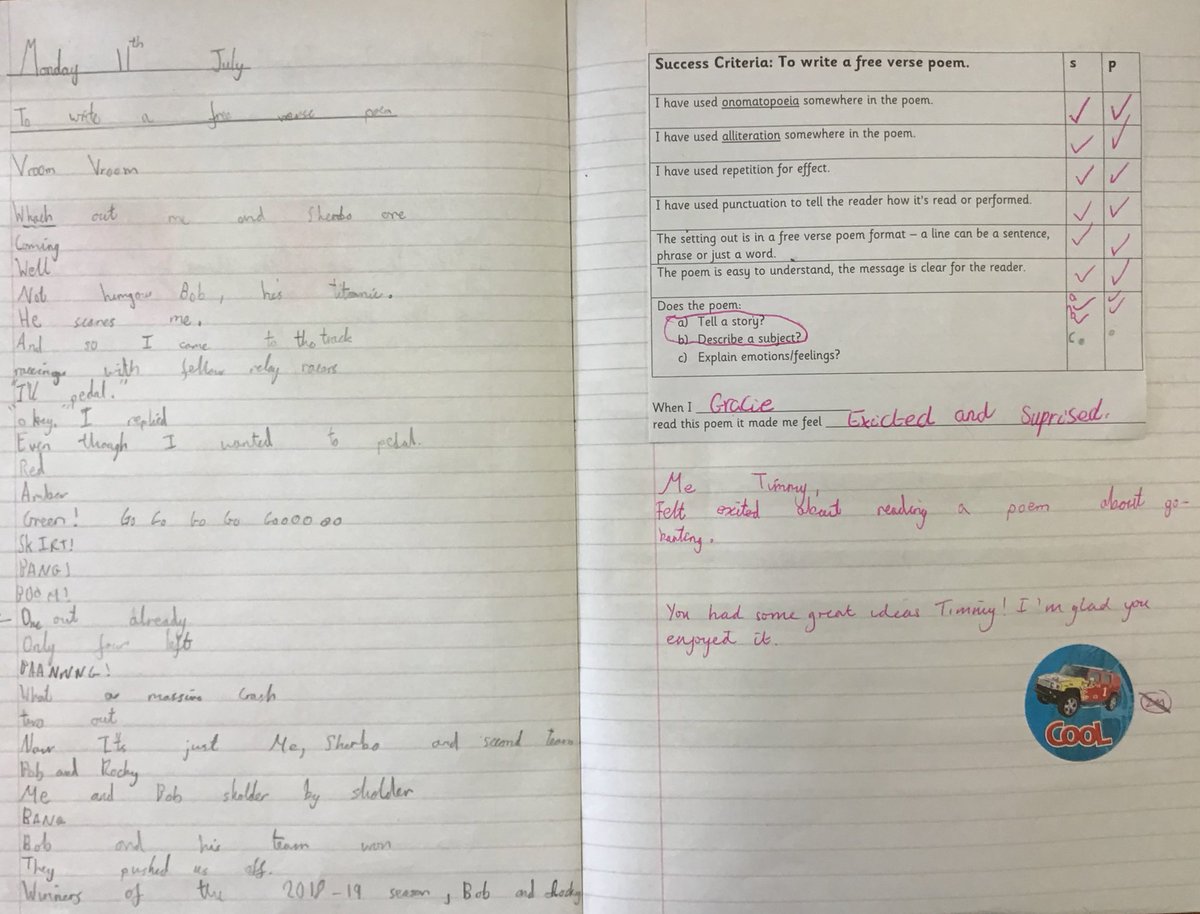 Monday 11th July
To write a free verse poem
Vroom Vroom
Whach out me and Sherbo are
Coming
Well
Not humgow Bob, his titanic.
He scares me.
And so I came to the track
raceing with fellow relay racers
"I'll pedal."
"o key." I replied
Even though I wanted to pedal.
Red
Amber
Green! Go Go Go Go Gooooo
SkIRT!
BANG!
BOOM!
One out already
Only four left
BAANNNG!
What a massive Crash
two out
Now It's just Me, Sherbo and second team
Bob and Rocky
Me and Bob sholder by sholder
BANG
Bob and his team won
They pushed us off.
Winners of the 2018-19 season, Bob and Rocky
Success Criteria: To write a free verse poem. s p
I have used onomatopoeia somewhere in the poem.
I have used alliteration somewhere in the poem.
I have used repetition for effect.
I have used punctuation to tell the reader how it's read or performed.
The setting out is in a free verse poem format – a line can be a sentence,
phrase or just a word.
The poem is easy to understand, the message is clear for the reader.
Does the poem: a
a) Tell a story? b
b) Describe a subject? c
c) Explain emotions/feelings?
When I Gracie
read this poem it made me feel Exicted and Suprised.
Me Timmy,
Felt exited about reading a poem about go-
karting.
You had some great ideas Timmy! I'm glad you
enjoyed it.
1
COOL